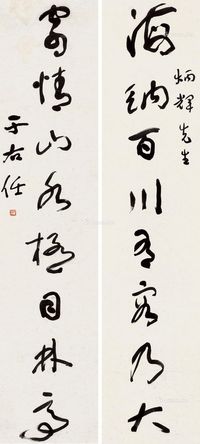 炳輝先生
海納百川有容乃大
寄情山水極目林亭
于右任